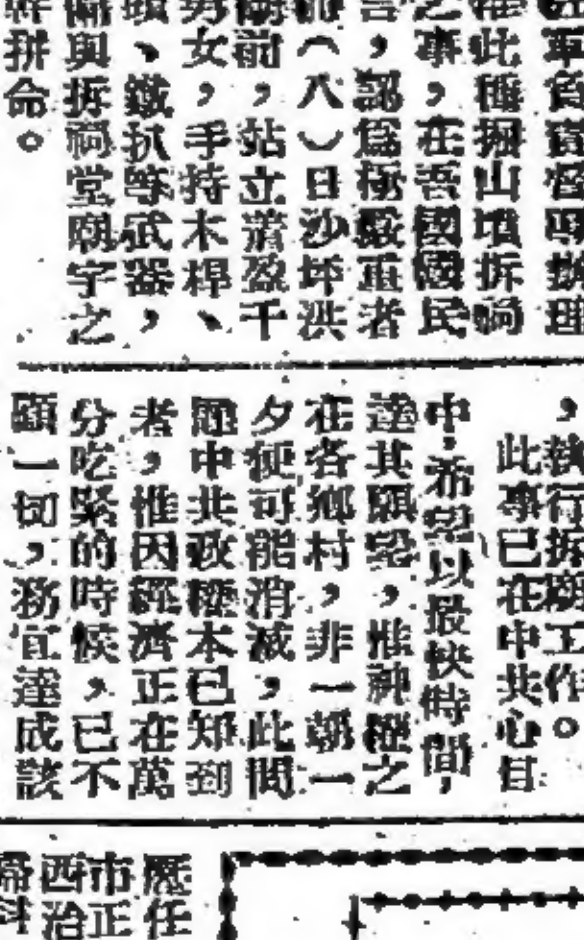 此種掘山墳拆祠
之事，在吾國國民
言，認爲極嚴重者
（八）日沙坪洪
前，站立滿盈千
男女，手持木桿、
頭、鐵扒等武器，
與拆祠堂廟宇之
拼命。
，執行拆廟工作。
此事已在中共心目
中，希望以最快時間，
達其願望，惟神權之
在各鄉村，非一朝一
夕便可能消滅，此問
題中共政權本已知到
者，惟因經濟正在萬
分吃緊的時候，已不
顧一切，務宜達成該
歷任
市正
西治
婦科